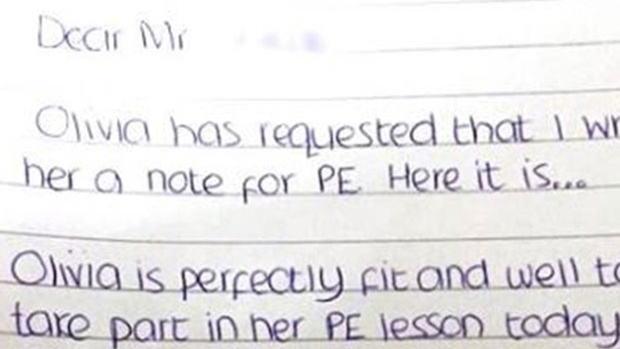 Dear Mr
Olivia has requested that I wr
her a note for PE. Here it is...
Olivia is perfectly fit and well to
take part in her PE lesson today